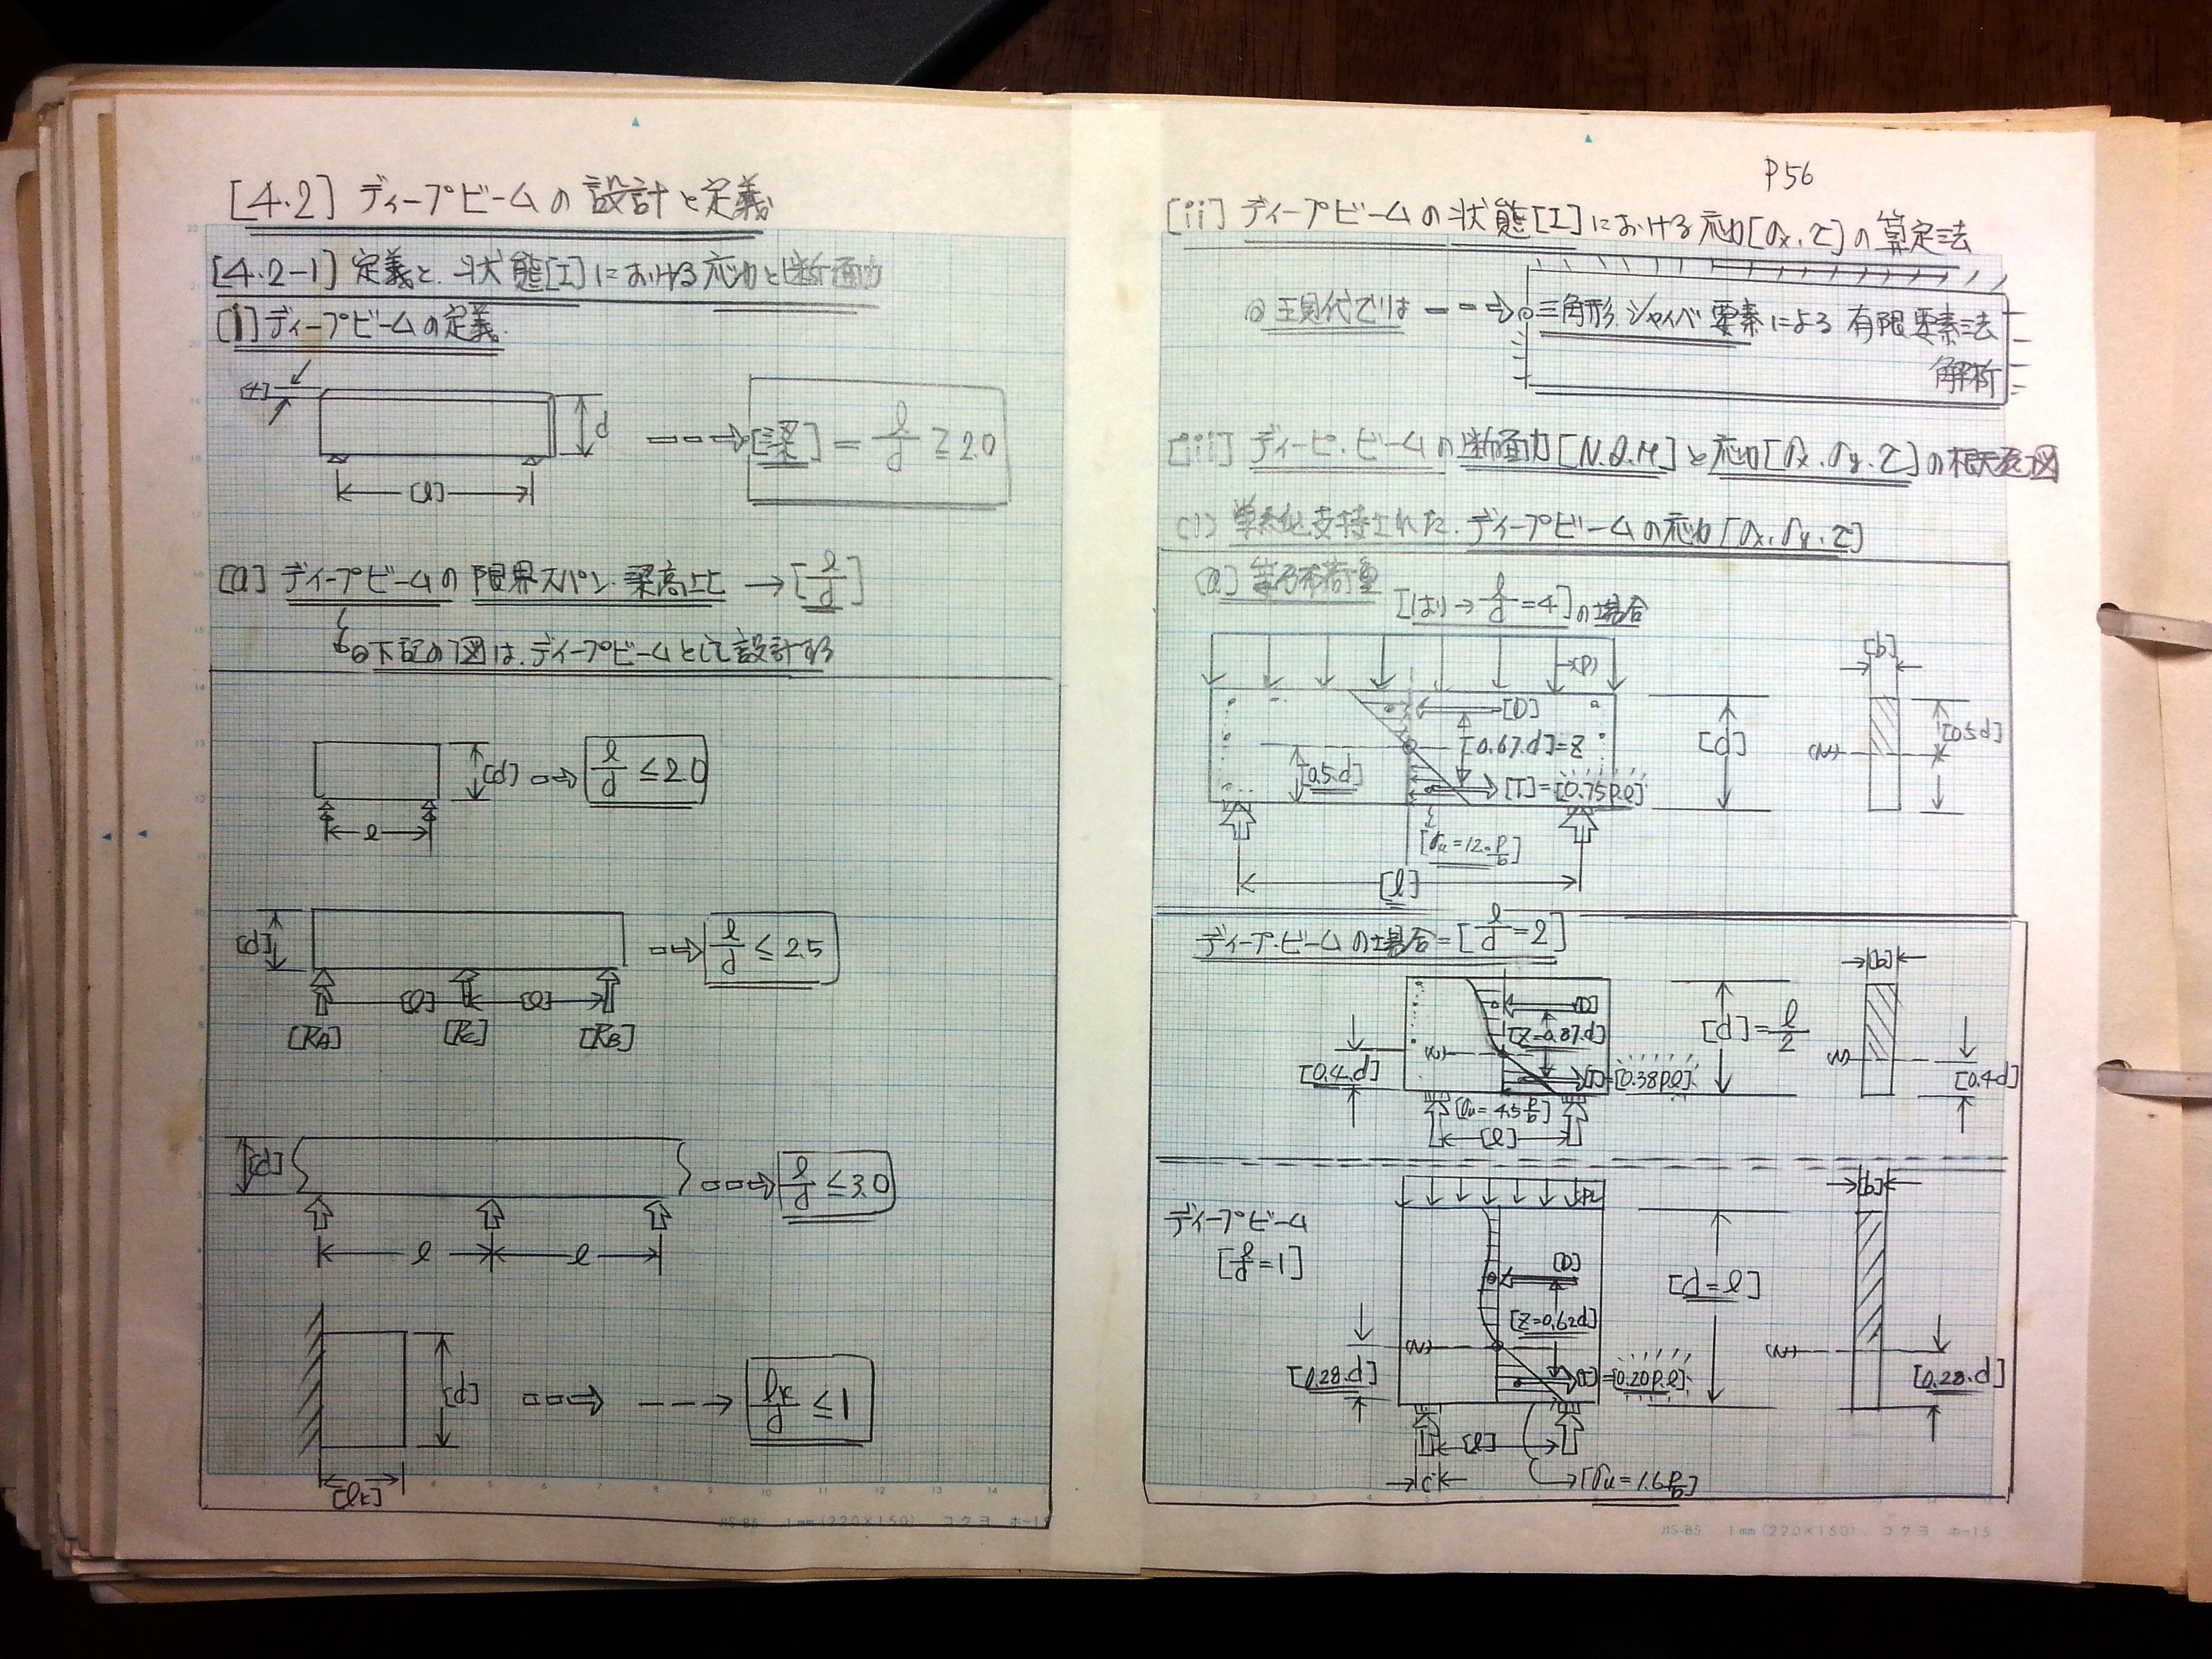 [4.2] ディープビームの設計と定義
[4.2-1] 定義と.状態[I]における応力と断面力
[i] ディープビームの定義.
[t]
d
[l]
[梁] = l/d ≧ 2.0
[a] ディープビームの限界スパン.梁高比 → [l/d]
◎下記の図は.ディープビームとして設計する
[d]
l/d ≤ 2.0
l
[d]
l/d ≤ 2.5
[l] [l]
[RA] [Rc] [RB]
[d]
l/d ≤ 3.0
l l
[d]
lk/d ≤ 1
[lk]
JIS-B5 1mm(220×150) コクヨ ホ-15
P56
[ii] ディープビームの状態[I]における応力[σx.τ]の算定法
◎現代では
三角形.シャイベ要素による有限要素法
解析
[iii] ディピ.ビームの断面力[N.Q.M]と応力[σx.σy.τ]の概念図
(1) 単純支持された.ディープビームの応力[σx.σy.τ]
(a) 等分布荷重
[はり→ l/d = 4]の場合
(P)
[b]
[D]
[0.67.d]=Z
[d]
(N)
[0.5d]
[0.5.d]
[T]=[0.75P.l]
[σu=12.P/b]
[l]
ディープ.ビームの場合=[l/d=2]
[b]
[D]
[Z=0.87.d]
[d]=l/2
(N)
(N)
[0.4.d]
[T]=[0.38P.l]
[0.4d]
[σu=4.5P/b]
[l]
[b]
ディープビーム
[l/d=1]
[D]
[d=l]
[Z=0.62d]
(N)
(N)
[0.28.d]
[T]=[0.20P.l]
[0.28.d]
[l]
c
[σu=1.6P/b]
JIS-B5 1mm(220×150) コクヨ ホ-15